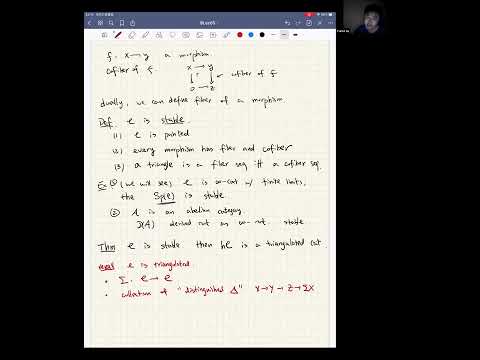 f: x → y a morphism.
cofiber of f. x → y
↓ ↓ cofiber of f
0 → z
dually, we can define fiber of a morphism.
Def. C is stable.
(1) C is pointed
(2) every morphism has fiber and cofiber
(3) a triangle is a fiber seq iff a cofiber seq.
Ex ① (we will see) C is ∞-cat w/ finite limits,
the Sp(C) is stable.
② A is an abelian category
D(A) derived cat as ∞-cat. stable
Thm C is stable then hC is a triangulated cat.
recall C is triangulated.
• Σ. C → C
• collection of "distinguished Δ" X → Y → Z → ΣX